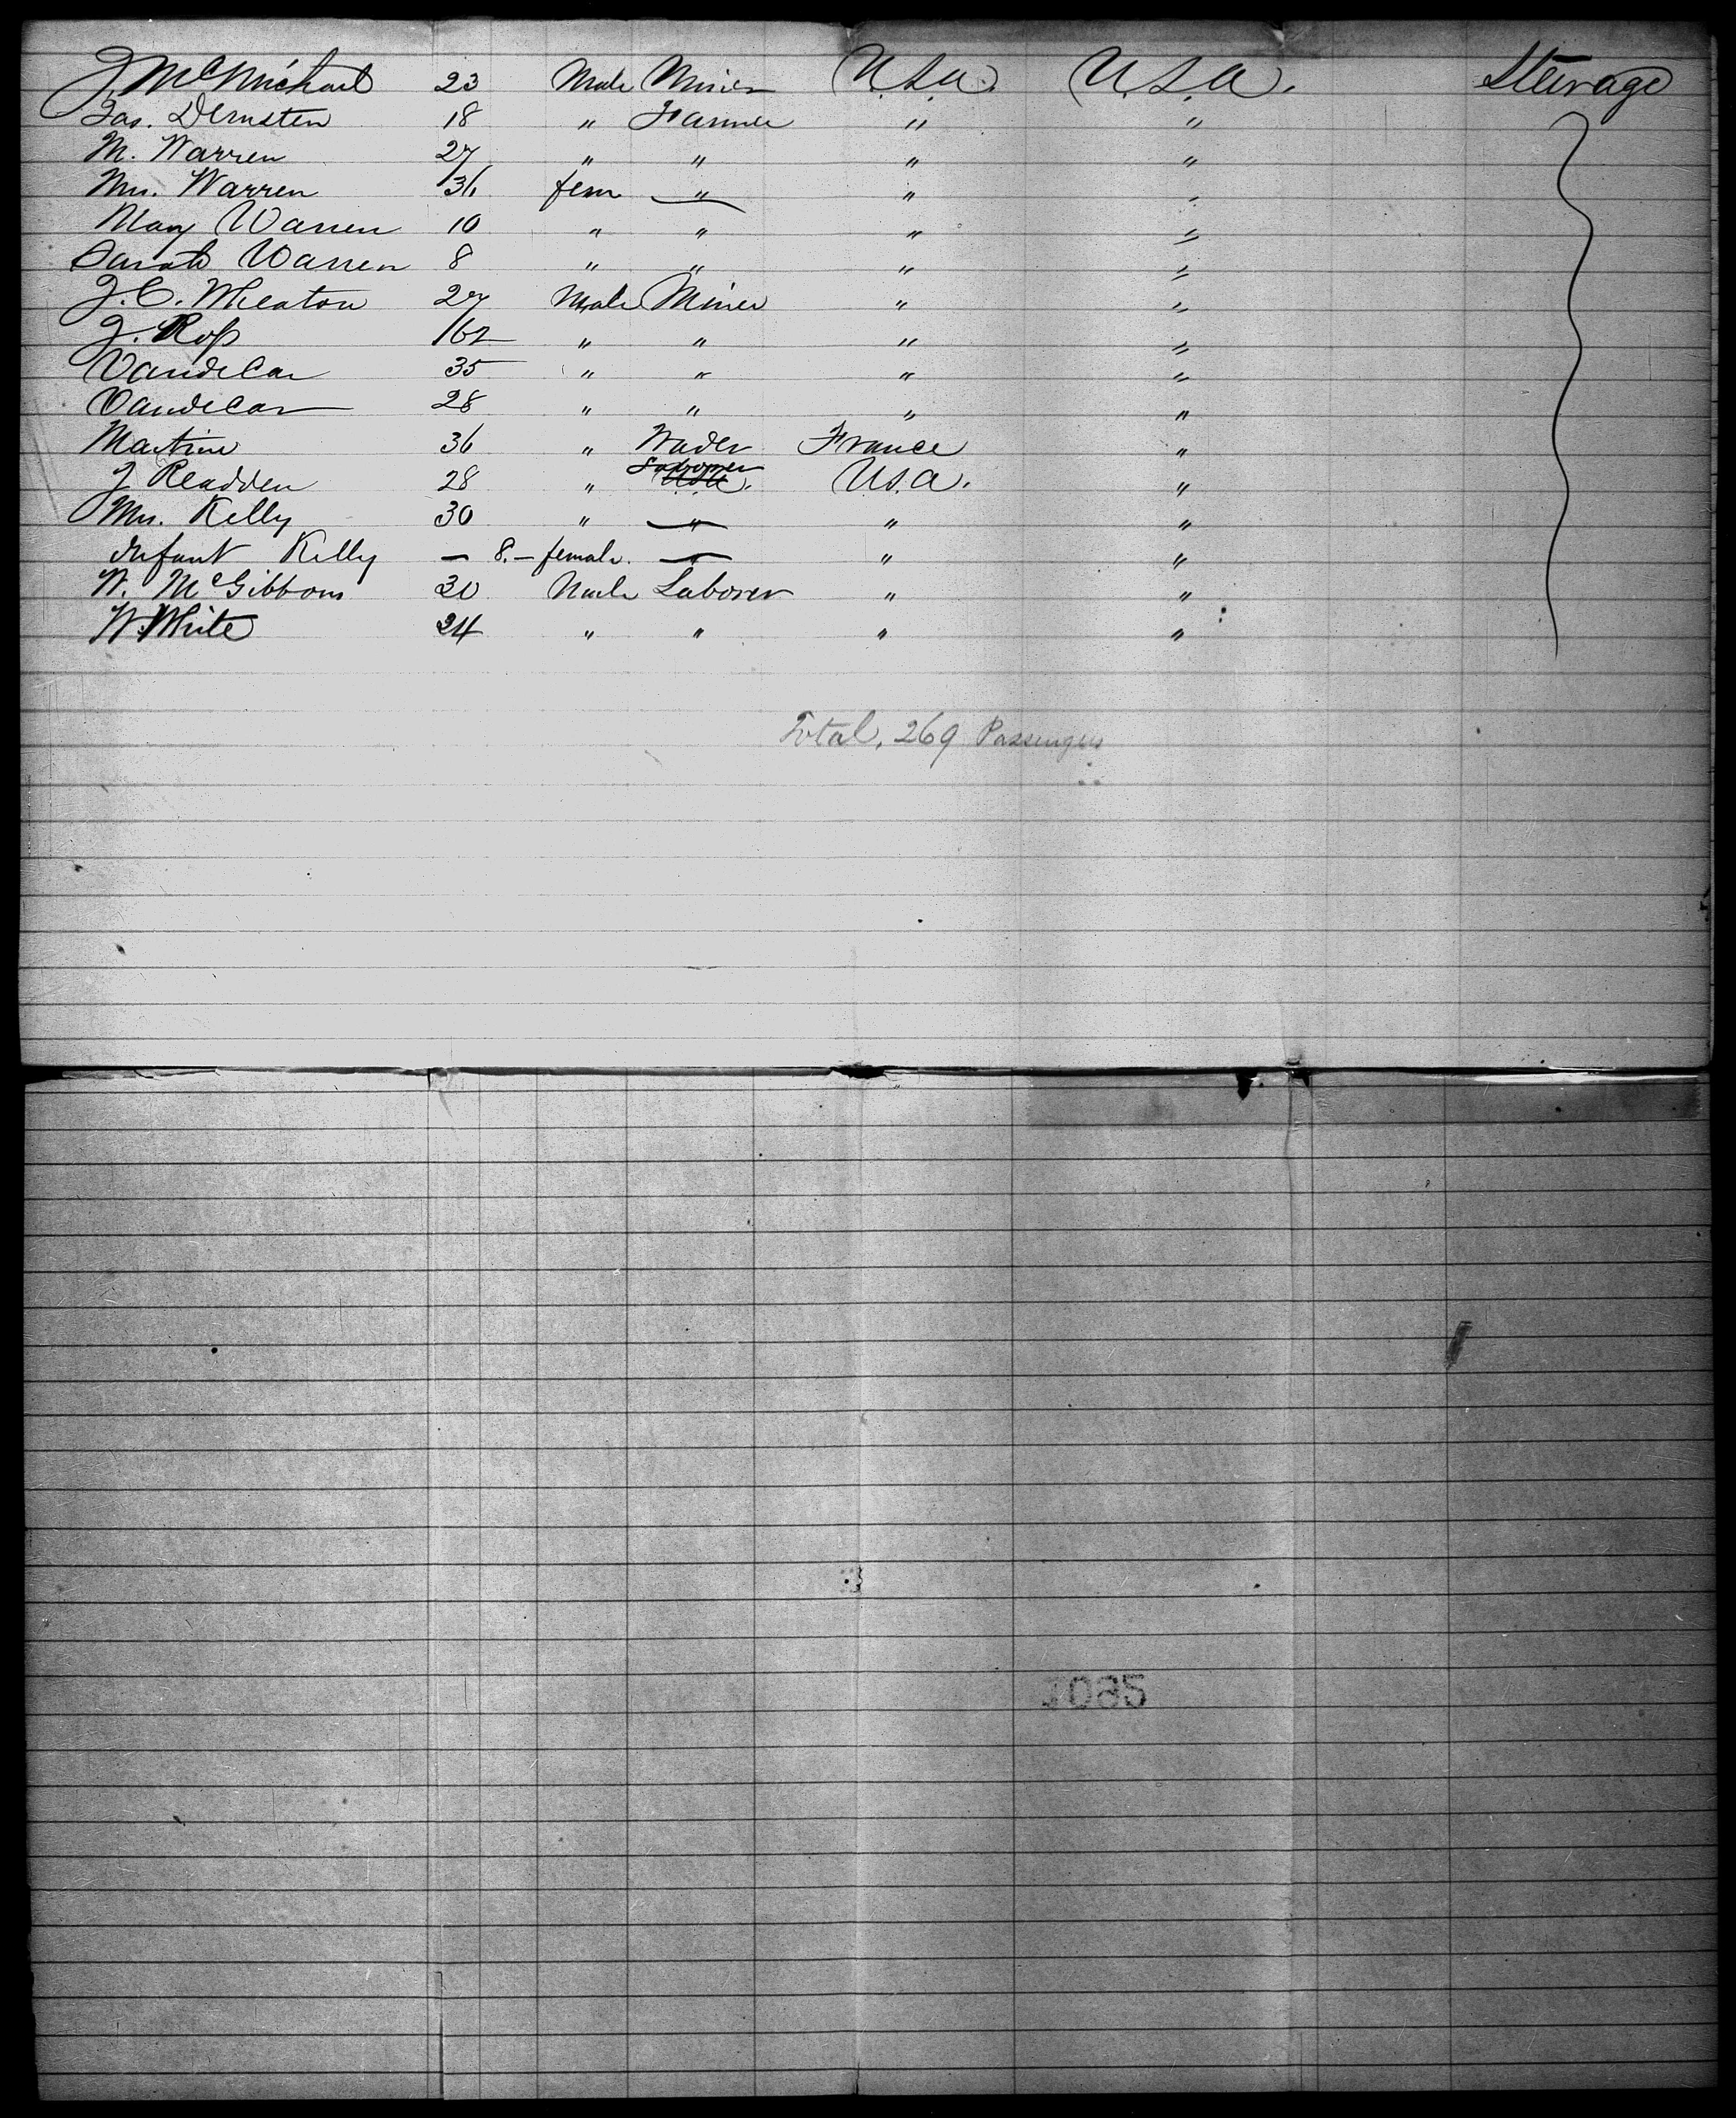 J McMichael 23 Male Miner U.S.A. U.S.A. Steerage
Jas. Dernsten 18 " Farmer " "
M. Warren 27 " " " "
Mrs. Warren 36 fem " " "
Mary Warren 10 " " " "
Sarah Warren 8 " " " "
J. C. Wheaton 27 Male Miner " "
J. Ross 62 " " " "
Vandecar 35 " " " "
Vandecar 28 " " " "
Martine 36 " Trader France "
J Readden 28 " Laborer U.S.A. "
Mrs. Kelly 30 " " " "
Infant Kelly — 8. — female. — " "
W. McGibbons 30 Male Laborer " "
W. White 24 " " " "
Total, 269 Passengers
1085